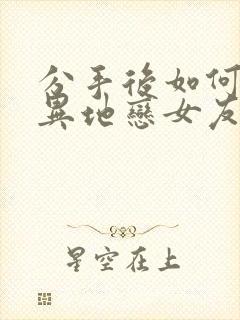 分手後如何
異地戀女友
星空在上